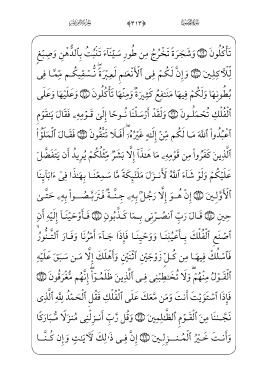 تَأْكُلُونَ ﴿١٩﴾ وَشَجَرَةً تَخْرُجُ مِن طُورِ سَيْنَآءَ تَنۢبُتُ بِٱلدُّهْنِ وَصِبْغٍ
لِّلْءَاكِلِينَ ﴿٢٠﴾ وَإِنَّ لَكُمْ فِى ٱلْأَنْعَٰمِ لَعِبْرَةً نُّسْقِيكُم مِّمَّا فِى
بُطُونِهَا وَلَكُمْ فِيهَا مَنَٰفِعُ كَثِيرَةٌ وَمِنْهَا تَأْكُلُونَ ﴿٢١﴾ وَعَلَيْهَا وَعَلَى
ٱلْفُلْكِ تُحْمَلُونَ ﴿٢٢﴾ وَلَقَدْ أَرْسَلْنَا نُوحًا إِلَىٰ قَوْمِهِۦ فَقَالَ يَٰقَوْمِ
ٱعْبُدُوا۟ ٱللَّهَ مَا لَكُم مِّنْ إِلَٰهٍ غَيْرُهُۥٓ أَفَلَا تَتَّقُونَ ﴿٢٣﴾ فَقَالَ ٱلْمَلَؤُا۟
ٱلَّذِينَ كَفَرُوا۟ مِن قَوْمِهِۦ مَا هَٰذَآ إِلَّا بَشَرٌ مِّثْلُكُمْ يُرِيدُ أَن يَتَفَضَّلَ
عَلَيْكُمْ وَلَوْ شَآءَ ٱللَّهُ لَأَنزَلَ مَلَٰٓئِكَةً مَّا سَمِعْنَا بِهَٰذَا فِىٓ ءَابَآئِنَا
ٱلْأَوَّلِينَ ﴿٢٤﴾ إِنْ هُوَ إِلَّا رَجُلٌۢ بِهِۦ جِنَّةٌ فَتَرَبَّصُوا۟ بِهِۦ حَتَّىٰ
حِينٍ ﴿٢٥﴾ قَالَ رَبِّ ٱنصُرْنِى بِمَا كَذَّبُونِ ﴿٢٦﴾ فَأَوْحَيْنَآ إِلَيْهِ أَنِ
ٱصْنَعِ ٱلْفُلْكَ بِأَعْيُنِنَا وَوَحْيِنَا فَإِذَا جَآءَ أَمْرُنَا وَفَارَ ٱلتَّنُّورُ
فَٱسْلُكْ فِيهَا مِن كُلٍّ زَوْجَيْنِ ٱثْنَيْنِ وَأَهْلَكَ إِلَّا مَن سَبَقَ عَلَيْهِ
ٱلْقَوْلُ مِنْهُمْ وَلَا تُخَٰطِبْنِى فِى ٱلَّذِينَ ظَلَمُوٓا۟ إِنَّهُم مُّغْرَقُونَ ﴿٢٧﴾
فَإِذَا ٱسْتَوَيْتَ أَنتَ وَمَن مَّعَكَ عَلَى ٱلْفُلْكِ فَقُلِ ٱلْحَمْدُ لِلَّهِ ٱلَّذِى
نَجَّىٰنَا مِنَ ٱلْقَوْمِ ٱلظَّٰلِمِينَ ﴿٢٨﴾ وَقُل رَّبِّ أَنزِلْنِى مُنزَلًا مُّبَارَكًا
وَأَنتَ خَيْرُ ٱلْمُنزِلِينَ ﴿٢٩﴾ إِنَّ فِى ذَٰلِكَ لَءَايَٰتٍ وَإِن كُنَّا